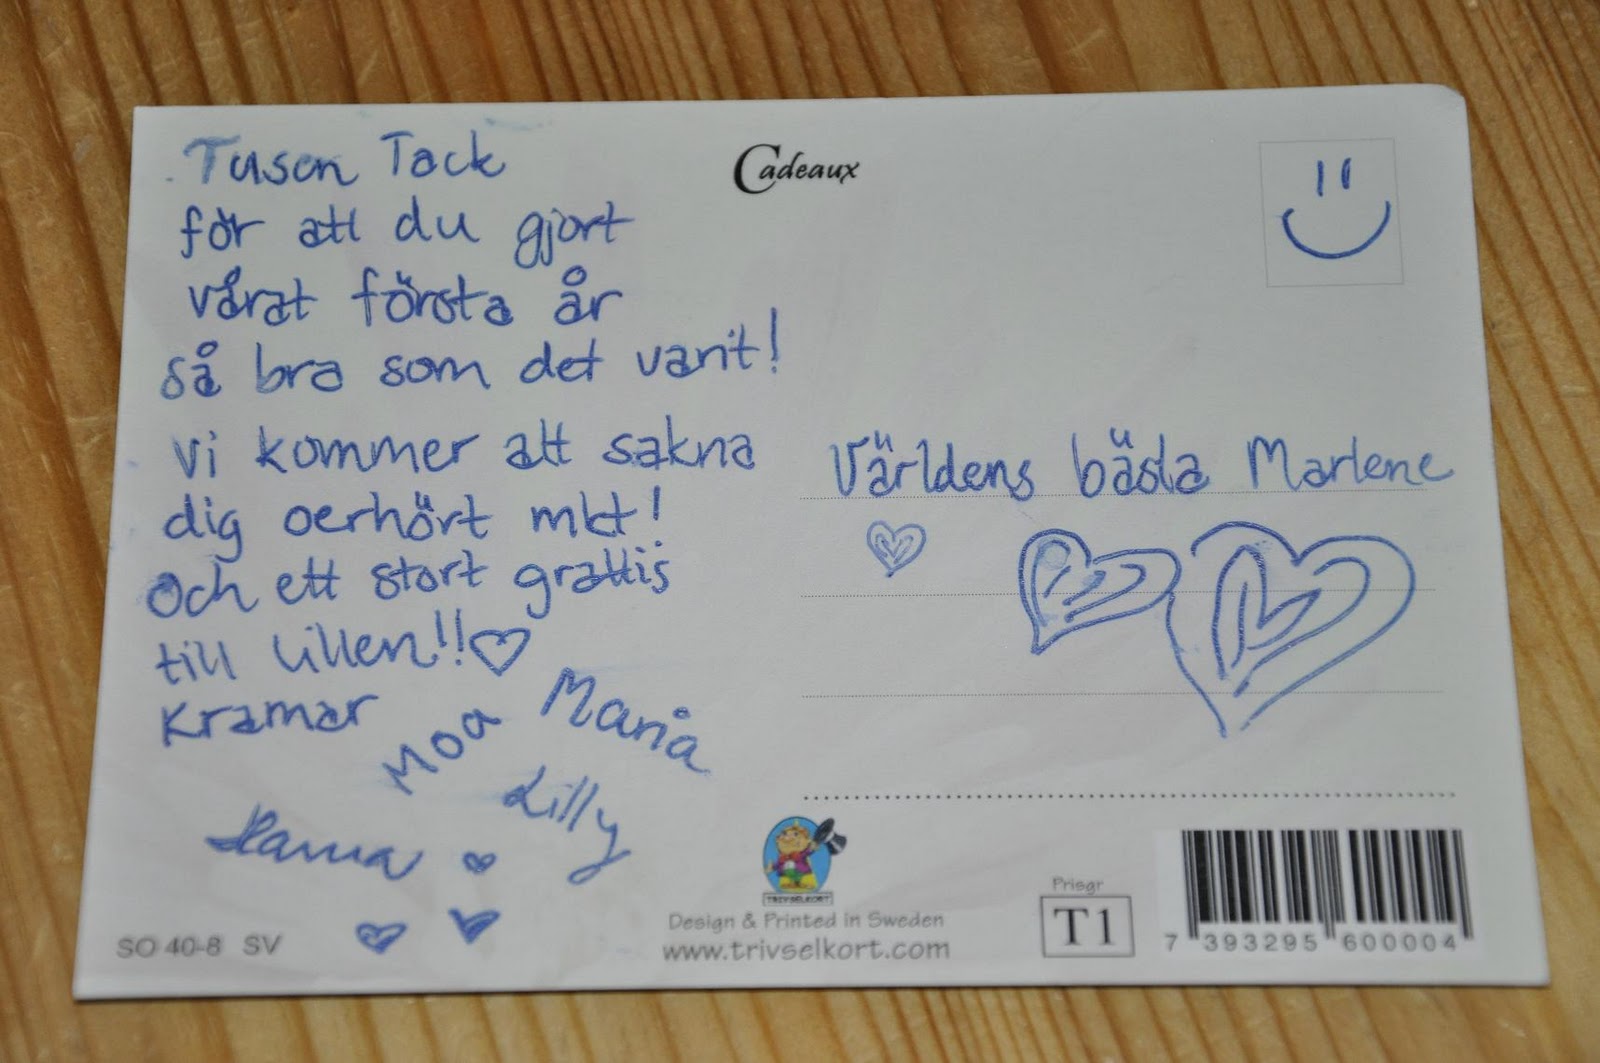 Tusen Tack
för att du gjort
vårat första år
så bra som det varit!
Vi kommer att sakna
dig oerhört mkt!
Och ett stort grattis
till lillen!!♡
Kramar
Moa Maria
Lilly
Hanna
SO 40-8 SV
Cadeaux
Världens bästa Marlene
TRIVSELKORT
Design & Printed in Sweden
www.trivselkort.com
Prisgr
T1
7 393295 600004